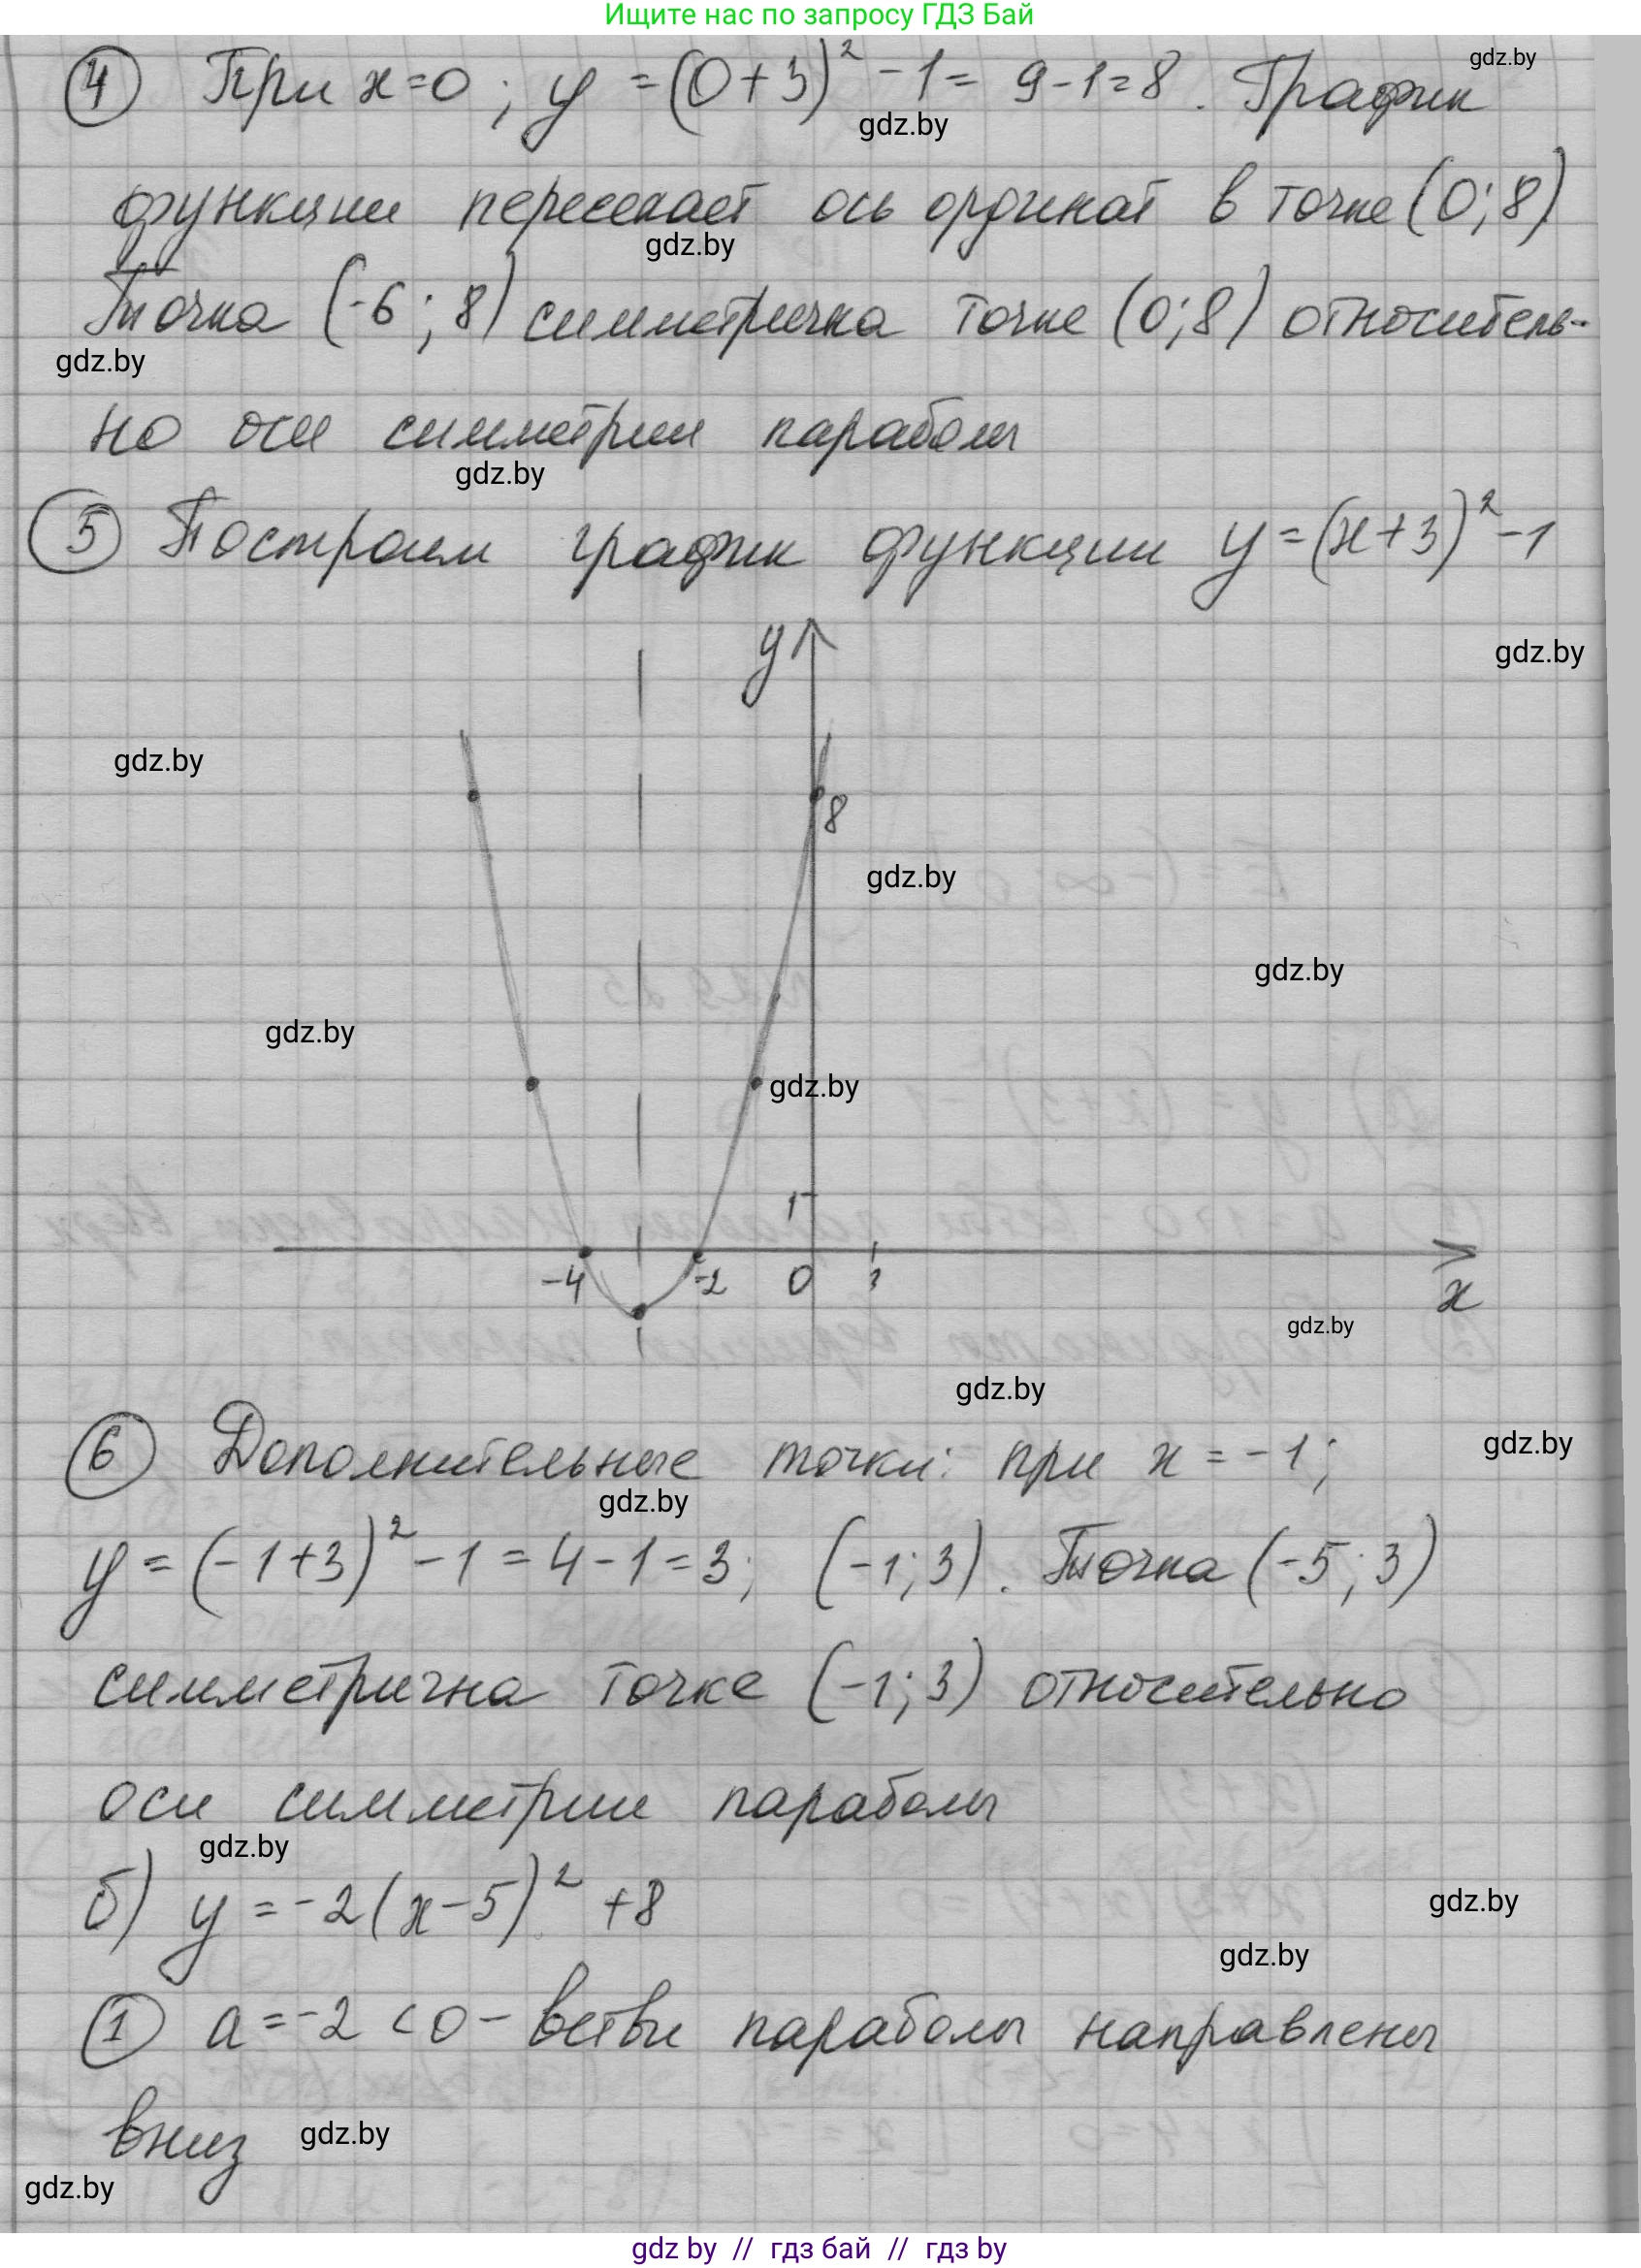 Ищите нас по запросу ГДЗ Бай
gdz.by
④ При x=0; y=(0+3)²-1=9-1=8. График
gdz.by
функции пересекает ось ординат в точке (0;8)
gdz.by
Точка (-6;8) симметрична точке (0;8) относитель-
gdz.by
но оси симметрии параболы
gdz.by
⑤ Построим график функции y=(x+3)²-1
y
gdz.by
gdz.by
8
gdz.by
gdz.by
gdz.by
gdz.by
1
-4 -2 0 1
x
gdz.by
gdz.by
⑥ Дополнительные точки: при x=-1;
gdz.by
gdz.by
y=(-1+3)²-1=4-1=3; (-1;3). Точка (-5;3)
симметрична точке (-1;3) относительно
оси симметрии параболы
gdz.by
б) y=-2(x-5)²+8
gdz.by
gdz.by
① a=-2<0 - ветви параболы направлены
вниз
gdz.by
gdz.by
gdz by // гдз бай // гдз by